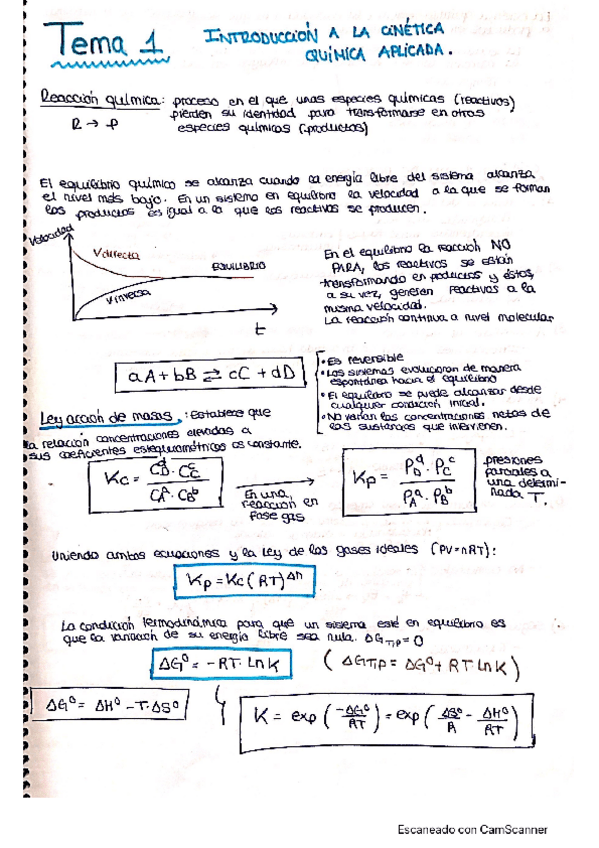 Tema 1
INTRODUCCIÓN A LA CINÉTICA
QUÍMICA APLICADA.
Reacción química: proceso en el que unas especies químicas (reactivos)
R → P
pierden su identidad para transformarse en otras
especies químicas (productos)
El equilibrio químico se alcanza cuando la energía libre del sistema alcanza
el nivel más bajo. En un sistema en equilibrio la velocidad a la que se forman
los productos es igual a la que los reactivos se producen.
Velocidad
Vdirecta
EQUILIBRIO
Vinversa
t
En el equilibrio la reacción NO
PARA, los reactivos se están
transformando en productos y éstos,
a su vez, generan reactivos a la
misma velocidad.
La reacción continua a nivel molecular
aA + bB ⇄ cC + dD
• Es reversible
• Los sistemas evolucionan de manera
espontánea hacia el equilibrio
• El equilibrio se puede alcanzar desde
cualquier condición inicial.
• No varían las concentraciones netas de
las sustancias que intervienen.
Ley acción de masas: Establece que
la relación concentraciones elevadas a
sus coeficientes estequiométricos es constante.
Kc = C_D^d · C_C^c / C_A^a · C_B^b
En una
reacción en
fase gas
Kp = P_D^d · P_C^c / P_A^a · P_B^b
presiones
parciales a
una determi-
nada T.
Uniendo ambas ecuaciones y la ley de los gases ideales (PV=nRT):
Kp = Kc (RT)^Δn
La condición termodinámica para que un sistema esté en equilibrio es
que la variación de su energía libre sea nula. ΔG_T,P = 0
ΔG⁰ = -RT · Ln K
(ΔG_T,P = ΔG⁰ + RT Ln K)
ΔG⁰ = ΔH⁰ - T · ΔS⁰
K = exp (-ΔG⁰/RT) = exp (ΔS⁰/R - ΔH⁰/RT)
Escaneado con CamScanner